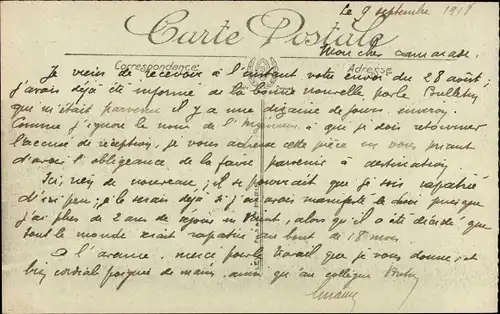 Le 9 septembre 191
Carte Postale
Mon cher camarade.
Correspondance
Adresse
Je viens de recevoir à l'instant votre envoi du 28 août,
j'avais déjà été informé de la bonne nouvelle par le Bulletin
qui m'était parvenu il y a une dizaine de jours environ
Comme j'ignore le nom de l' à qui je dois retourner
l'accusé de réception, je vous adresse cette pièce en vous priant
d'avoir l'obligeance de la faire parvenir à destination
Ici, rien de nouveau; il se pourrait que je sois rapatrié
d'ici peu; je le serais déjà si j'avais manifesté le désir puisque
j'ai plus de 2 ans de séjour en , alors qu'il a été décidé que
tout le monde serait rapatrié au bout de 18 mois.
A l'avance, merci pour le travail que je vous donne, et
bien cordiale poignée de main, ainsi qu'au collègue